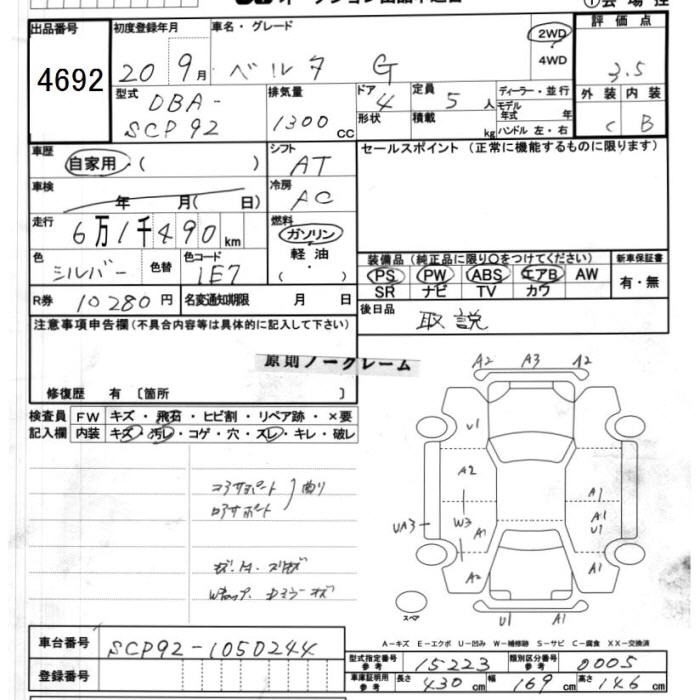 出品番号
4692
初度登録年月
20 9月
車名・グレード
ベルタ G
2WD
4WD
評価点
3.5
外装 内装
C B
型式
DBA-
SCP92
排気量
1300 CC
ドア
4
形状
定員
5 人
積載
kg
ディーラー・並行
モデル
年式 年
ハンドル 左・右
車歴
自家用・(
)
シフト
AT
セールスポイント (正常に機能するものに限ります)
車検
年 月(日)
冷房
AC
走行
6万1千490 km
燃料
ガソリン
軽油
( ・ )
色
シルバー
色替
色コード
1E7
装備品 (純正品に限り○をつけてください)
PS PW ABS エアB AW
SR ナビ TV カワ
新車保証書
有・無
R券 10280円
名変通知期限 月 日
後日品
取説
注意事項申告欄(不具合内容等は具体的に記入して下さい)
原則ノークレーム
修復歴 有 〔箇所 〕
検査員
記入欄
FW キズ・飛石・ヒビ割・リペア跡・×要
内装 キズ・汚レ・コゲ・穴・スレ・キレ・破レ
コアサポート
ロアサポート
曲り
A2 A3 A2
U1
A2
UA3
W3
A1
A2
A1
A1
U1
A1
U1 A1
スペア
A-キズ E-エクボ U-凹み W-補修跡 S-サビ C-腐食 XX-交換済
車台番号
SCP92-1050244
登録番号
型式指定番号
参考
15223
類別区分番号
参考
0005
車庫証明用
参考
長さ 430 cm
幅 169 cm
高さ 146 cm